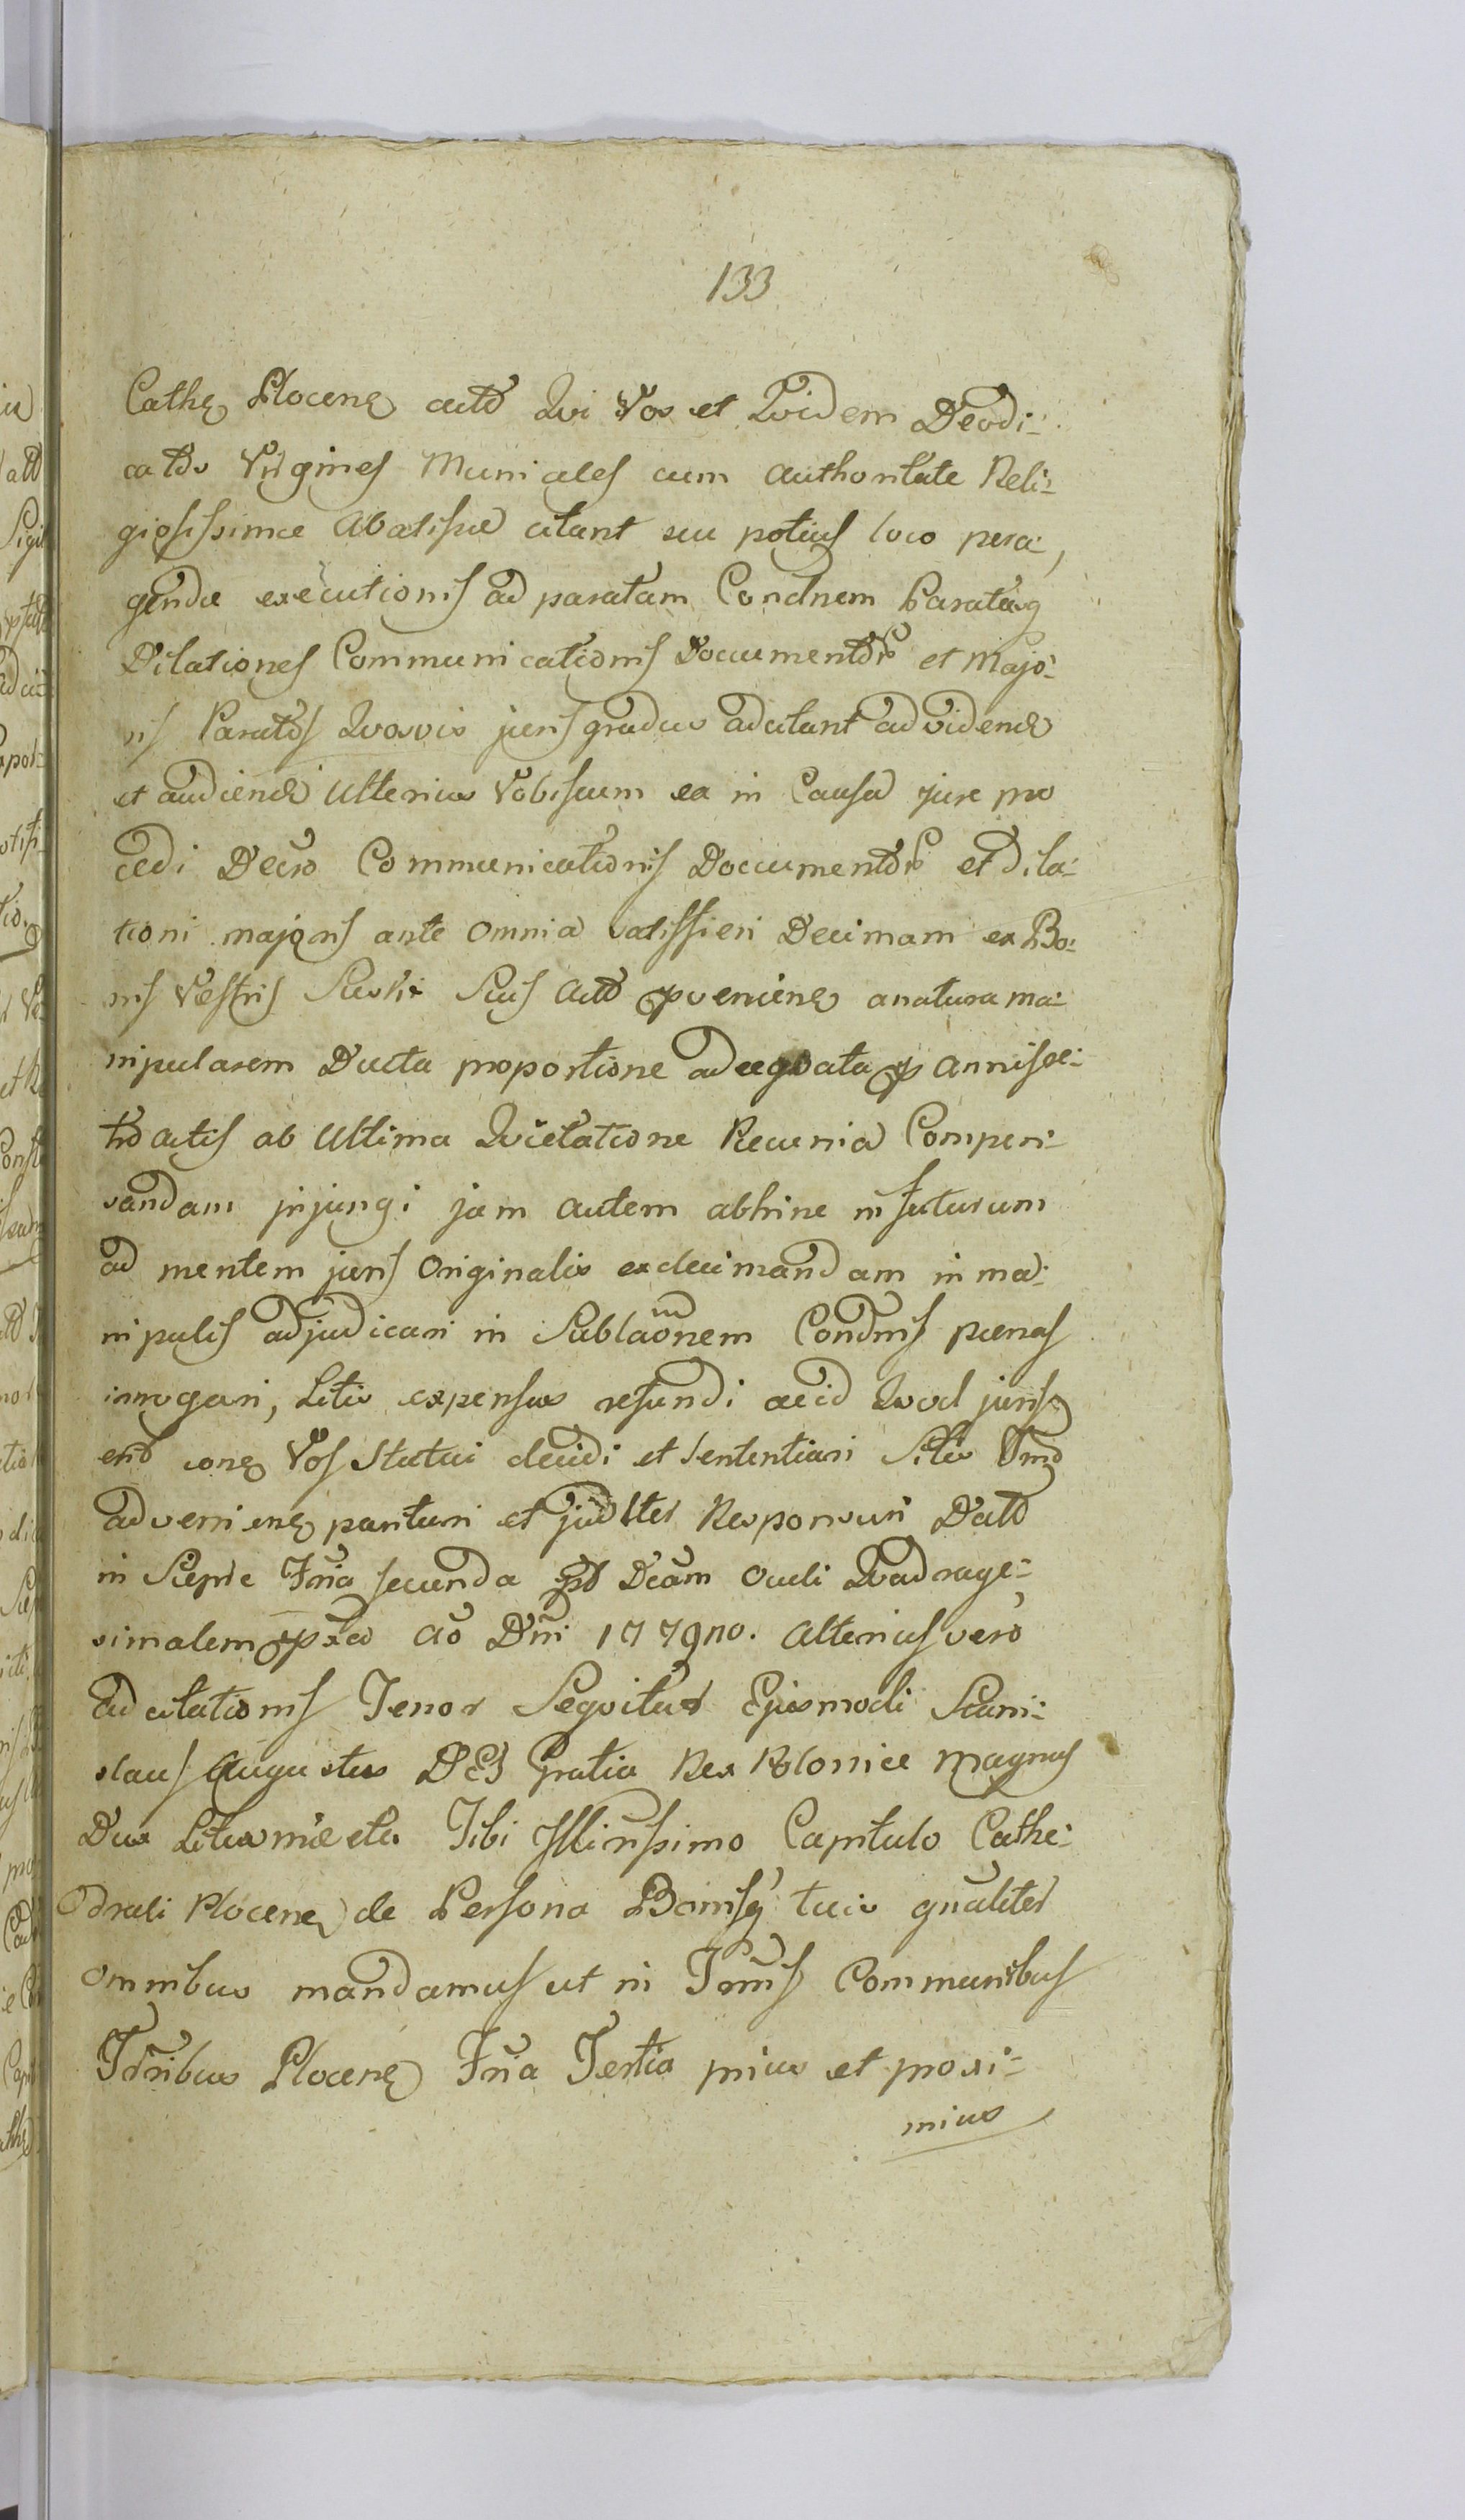 133
Cathę Plocenę actõ Qvi Vos et Qvidem Deodi-
catõs Virgines Moniales cum Authoritate Reli-
giosissimæ Abatissæ citant seu potius loco pera-
gendæ executionis ad paratam Condnem Paratasq
Dilationes Communicationis Documentõr et Majo-
ris Paratõs Qvosvis juris gradus adcitant ad videnð
et audienð Ulterius Vobiscum ea in Causa jure pro
cedi Decro Communicationis Documentõr et dila-
tioni majoris ante omnia satisfieri Decimam ex Bo-
nis Vestris Suis Actõ pvenienę a natura ma-
nipularem Ducta proportione adeqvata p annis re-
tro actis ab Ultima Qvietatione Pecunia Compen-
sandam injungi jam autem abhinc in futurum
ad mentem juris Originalis exdecimandam in ma-
nipulis adjudicari in Sublaõnem Condnis pænas
irrogari, Litis expensas refundi ac id Qvod juris
erit conę Vos Statui decidi et Sententiari Sitis Tmõ
advenienę parituri et juðlter Responsuri Datõ
in Sierpc Fria secunda pst Dcam Oculi Qvadrage-
simalem pxa Aõ Dñi 1779no. Alterius vero
adcitationis Tenor Seqvitur Ejusmodi Stani-
slaus Augustus DEI Gratia Rex Poloniæ Magnus
Dux Lituaniæ etc. Tibi Illrissimo Capitulo Cathe-
drali Plocenę de Persona Bonisq tuis gnaliter
omnibus mandamus ut in Trmis Communibus
Trribus Plocenę Fria Tertia prius et proxi-
mius